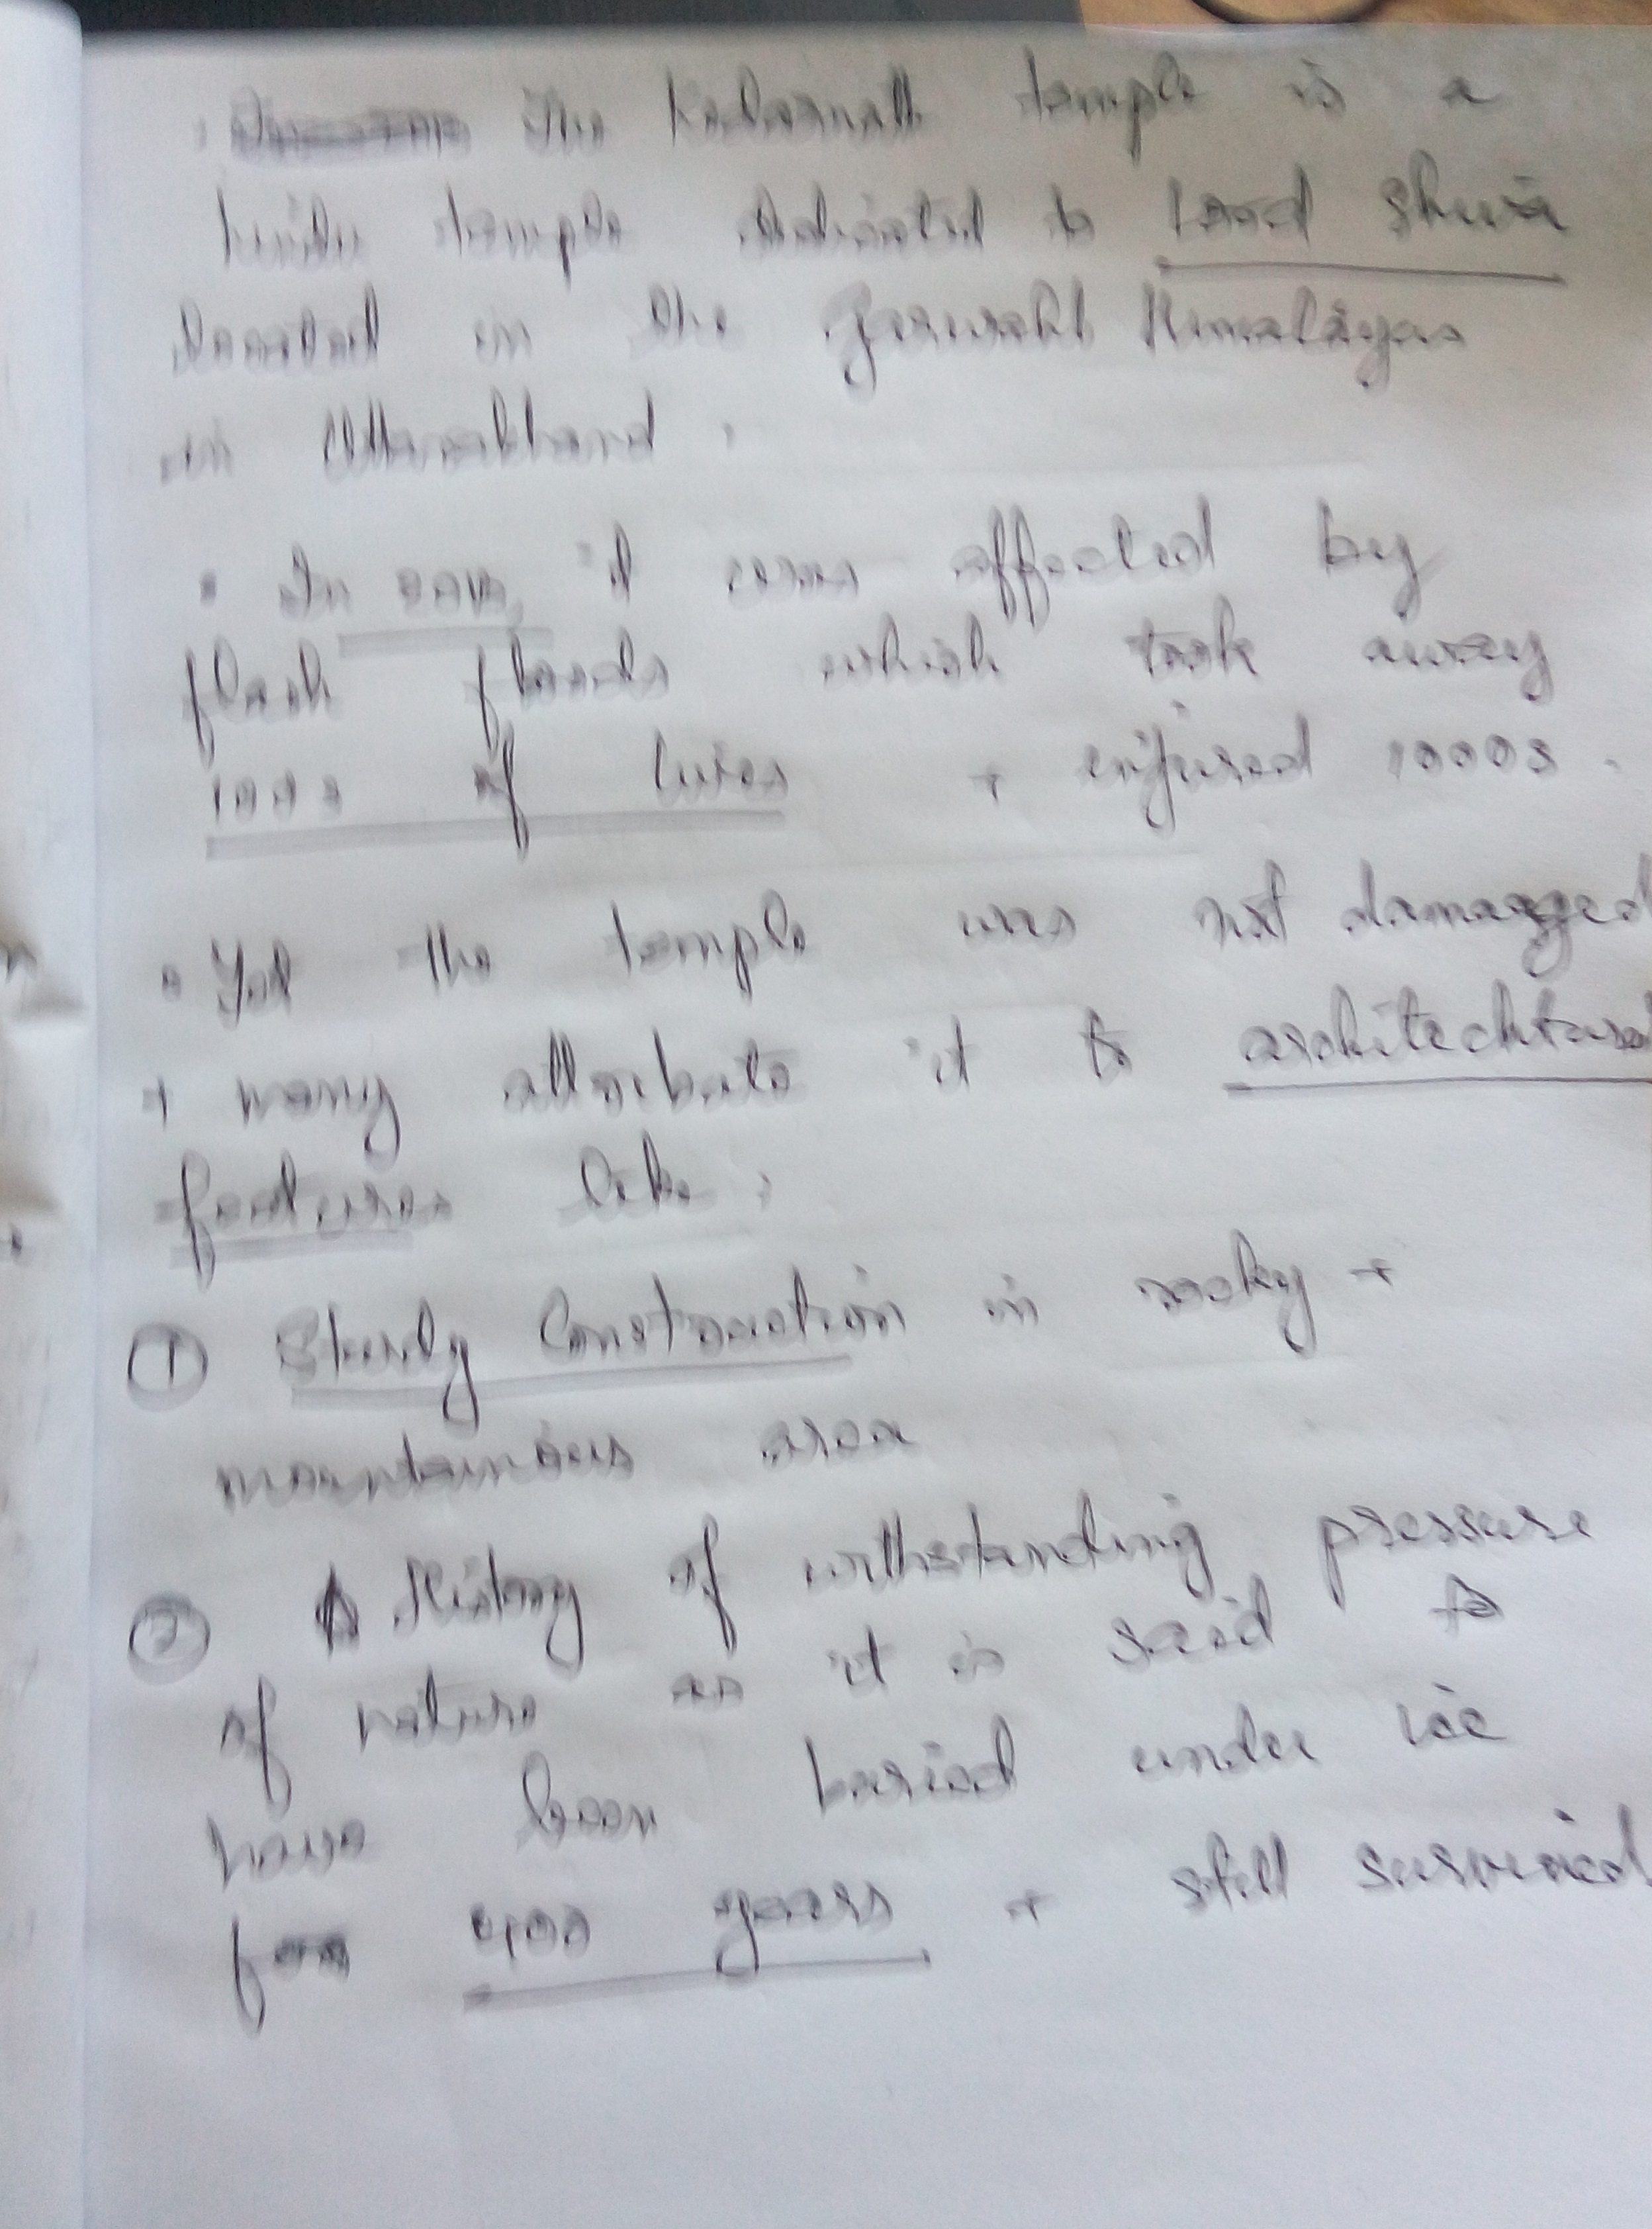 · The Kedarnath temple is a
hindu temple dedicated to Lord Shiva
located in the Garwahl Himalayas
in Uttarakhand .
• In it was affected by
flash floods which took away
100s of lives + injured 1000s .
• Yet the temple was not damaged
+ many attribute it to architechtural
features like :
① Sturdy Construction in rocky +
mountainous area
② History of withstanding pressure
of nature as it is said to
have been buried under ice
for 400 years + still survived